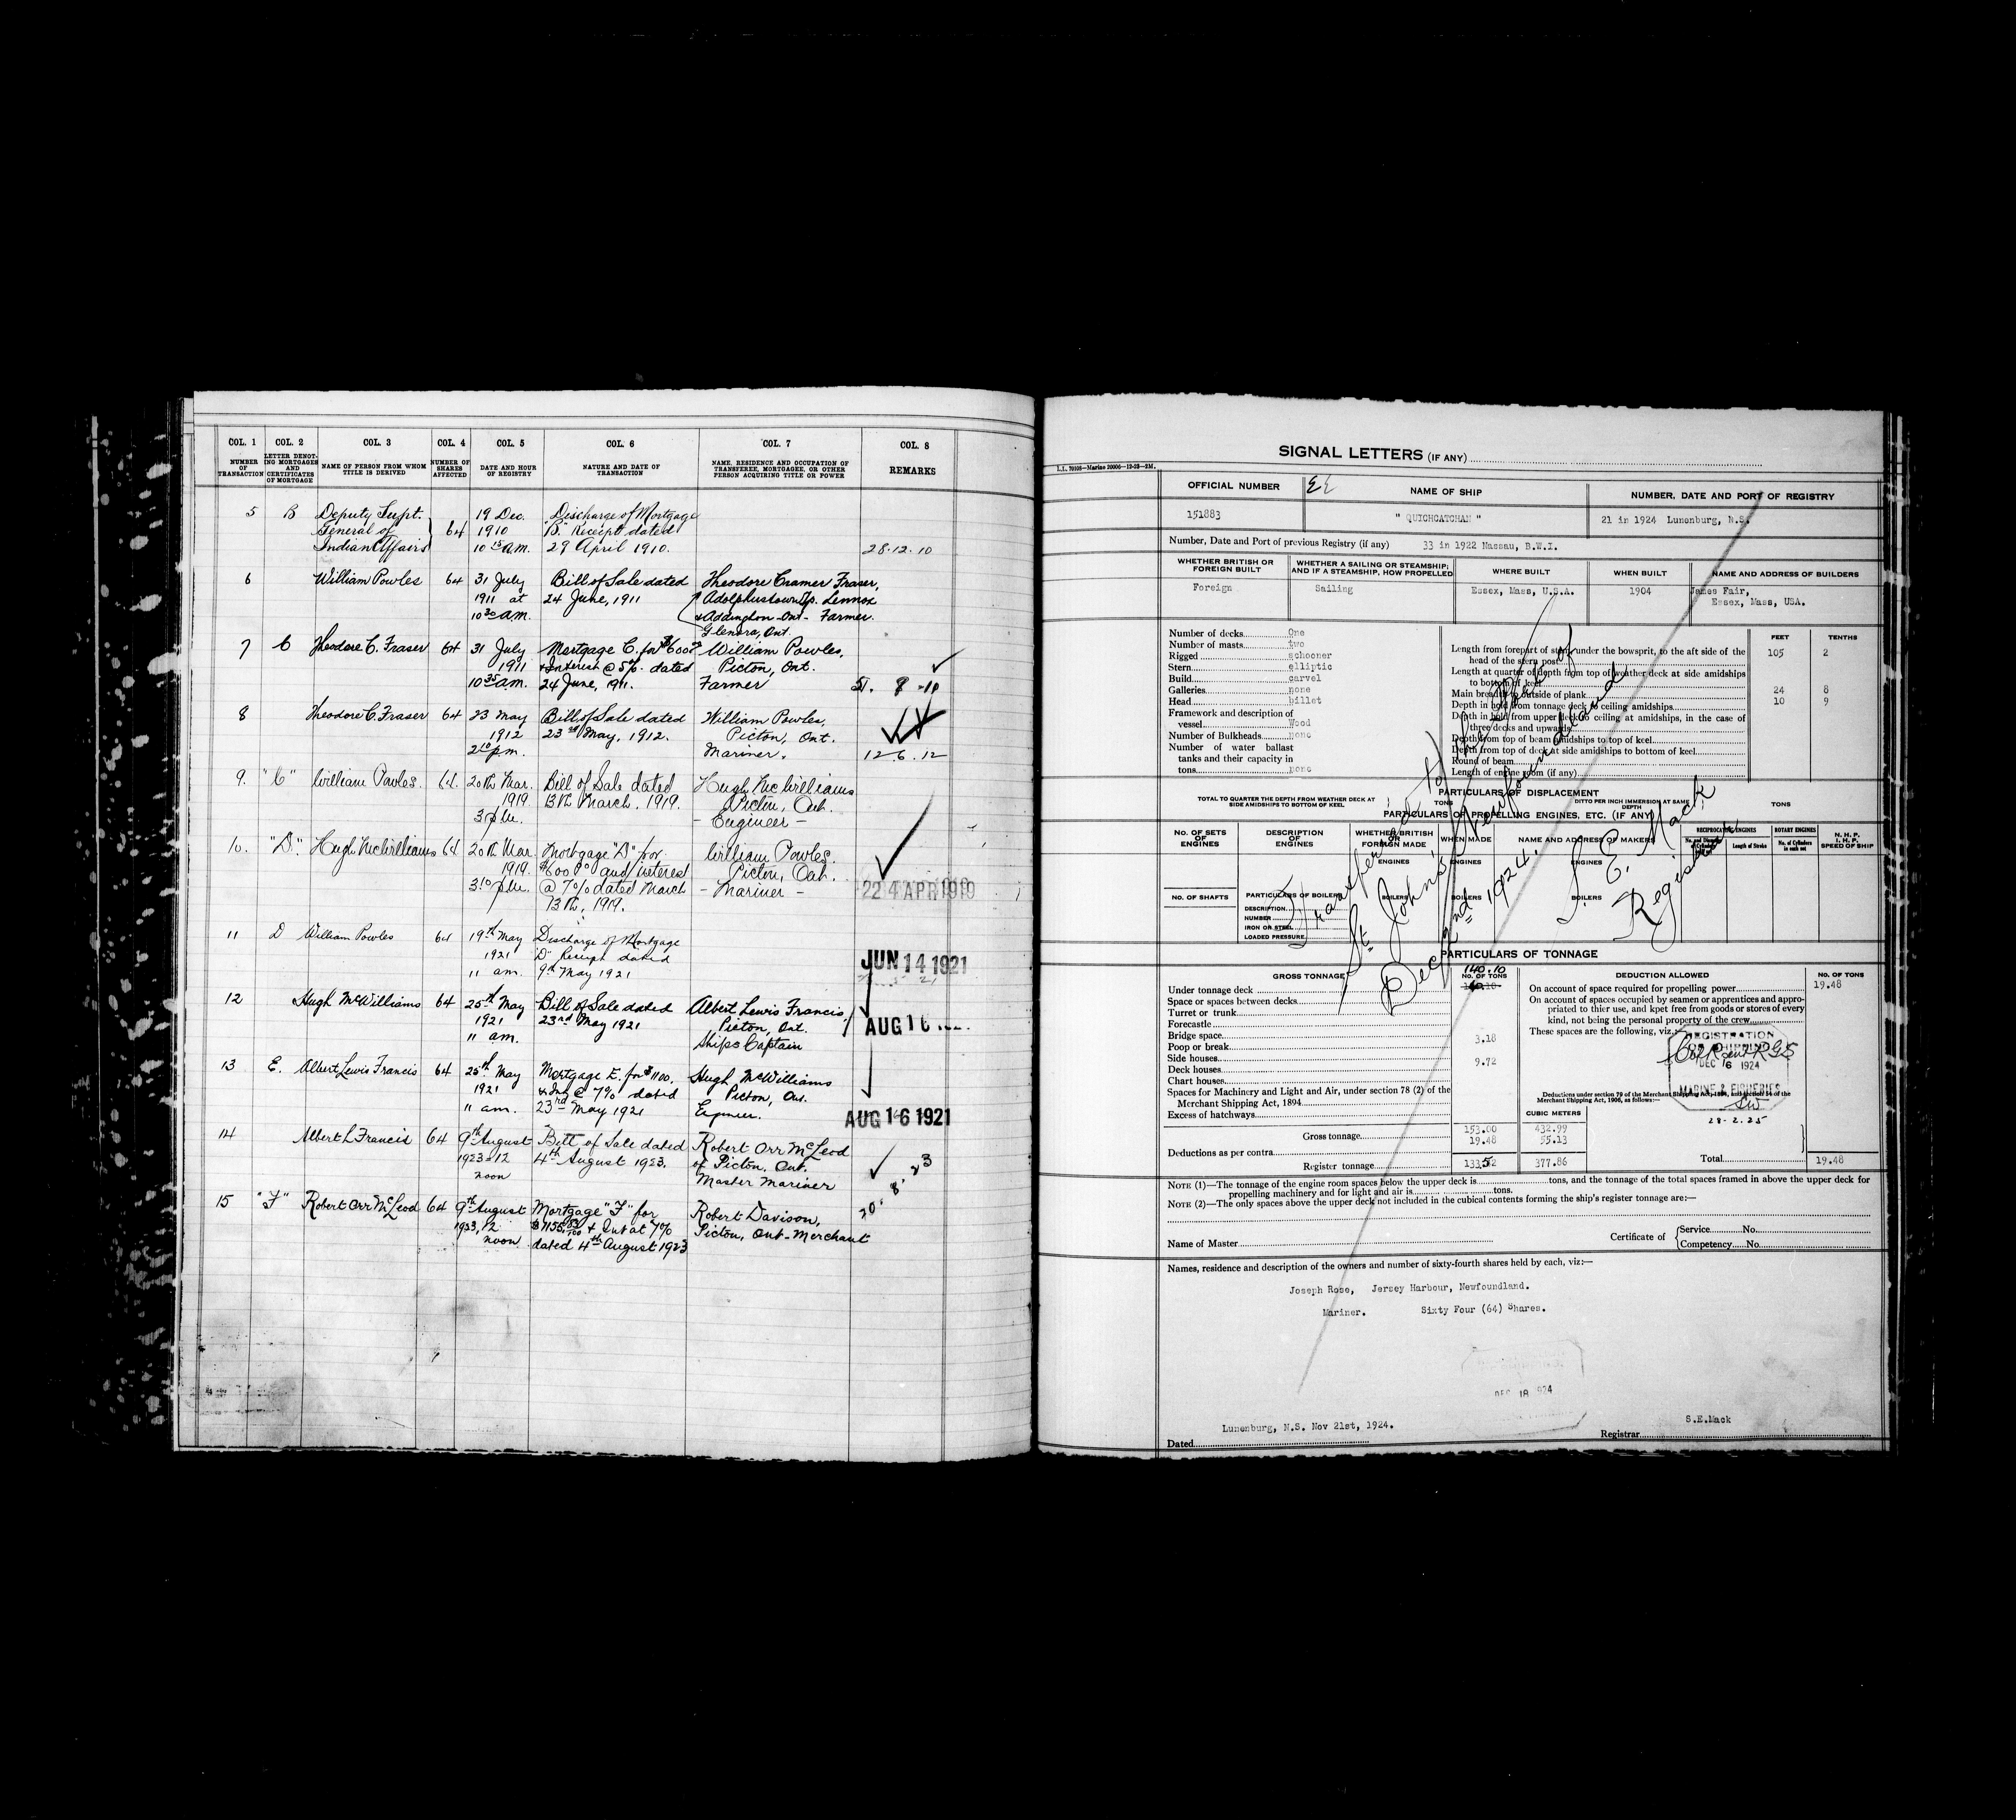 COL. 1 COL. 2 COL. 3 COL. 4 COL. 5 COL. 6 COL. 7 COL. 8
NUMBER OF TRANSACTION
LETTER DENOTING MORTGAGES AND CERTIFICATES OF MORTGAGE
NAME OF PERSON FROM WHOM TITLE IS DERIVED
NUMBER OF SHARES AFFECTED
DATE AND HOUR OF REGISTRY
NATURE AND DATE OF TRANSACTION
NAME, RESIDENCE AND OCCUPATION OF TRANSFEREE, MORTGAGEE, OR OTHER PERSON ACQUIRING TITLE OR POWER
REMARKS
5 B Deputy Supt. 19 Dec. Discharge of Mortgage
General of 64 1910 "B." Receipt dated
Indian Affairs 10 15 a.m. 29 April 1910. 28.12.10
6 William Powles 64 31 July Bill of Sale dated Theodore Cramer Fraser,
1911 at 24 June, 1911 Adolphustown Tp. Lennox
10 30 a.m. & Addington - Ont - Farmer.
Glenora, Ont.
7 C Theodore C. Fraser 64 31 July Mortgage C. for $600 William Powles,
1911 & Interest @ 5%. dated Picton, Ont.
10 35 a.m. 24 June, 1911. Farmer
8 Theodore C. Fraser 64 23 May Bill of Sale dated William Powles,
1912 23rd May, 1912. Picton, Ont.
2 10 p.m. Mariner. 12.6.12
9. "C" William Powles. 64. 20th Mar. Bill of Sale dated Hugh McWilliams
1919. 13th March. 1919. Picton, Ont.
3 p.m. - Engineer -
10. "D". Hugh McWilliams 64 20th Mar. Mortgage "D" for William Powles.
1919. $600 00 and interest Picton, Ont.
3 10 p.m. @ 7% dated March - Mariner - 22 4 APR 1919
13th, 1919.
11 D William Powles 64 19th May Discharge of Mortgage
1921 "D" Receipt dated JUN 14 1921
11 am. 9th May 1921
12 Hugh McWilliams 64 25th May Bill of Sale dated Albert Lewis Francis,
1921 23rd May 1921 Picton, Ont. AUG 16
11 am. Ships Captain
13 E. Albert Lewis Francis 64 25th May Mortgage E. for $1100. Hugh McWilliams
1921 & Int @ 7% dated Picton, Ont.
11 am. 23rd May 1921 Engineer. AUG 16 1921
14 Albert L Francis 64 9th August Bill of Sale dated Robert Orr McLeod
1923 12 4th August 1923. of Picton. Ont.
noon Master Mariner 20.8.23
15 "F" Robert Orr McLeod 64 9th August Mortgage "F" for Robert Davison,
1923, 12 & Int at 7% Picton, Ont - Merchant
noon dated 4th August 1923
SIGNAL LETTERS (IF ANY)
L.I. 70105—Marine 20006—12-23—2M.
OFFICIAL NUMBER NAME OF SHIP NUMBER, DATE AND PORT OF REGISTRY
151883 " QUICHCATCHAM " 21 in 1924 Lunenburg, N.S.
Number, Date and Port of previous Registry (if any) 33 in 1922 Nassau, B.W.I.
WHETHER BRITISH OR FOREIGN BUILT
WHETHER A SAILING OR STEAMSHIP; AND IF A STEAMSHIP, HOW PROPELLED
WHERE BUILT WHEN BUILT NAME AND ADDRESS OF BUILDERS
Foreign Sailing Essex, Mass, U.S.A. 1904 James Fair,
Essex, Mass, USA.
FEET TENTHS
Number of decks One
Number of masts two
Rigged schooner
Stern elliptic
Build carvel
Galleries none
Head billet
Framework and description of
vessel Wood
Number of Bulkheads none
Number of water ballast
tanks and their capacity in
tons none
Length from forepart of stem under the bowsprit, to the aft side of the
head of the stern post 105 2
Length at quarter of depth from top of weather deck at side amidships
to bottom of keel
Main breadth to outside of plank 24 8
Depth in hold from tonnage deck to ceiling amidships 10 9
Depth in hold from upper deck to ceiling at amidships, in the case of
three decks and upwards
Depth from top of beam amidships to top of keel
Depth from top of deck at side amidships to bottom of keel
Round of beam
Length of engine room (if any)
PARTICULARS OF DISPLACEMENT
TOTAL TO QUARTER THE DEPTH FROM WEATHER DECK AT SIDE AMIDSHIPS TO BOTTOM OF KEEL TONS DITTO PER INCH IMMERSION AT SAME DEPTH TONS
PARTICULARS OF PROPELLING ENGINES, ETC. (IF ANY)
NO. OF SETS OF ENGINES DESCRIPTION OF ENGINES WHETHER BRITISH OR FOREIGN MADE WHEN MADE NAME AND ADDRESS OF MAKERS RECIPROCATING ENGINES ROTARY ENGINES N.H.P. I.H.P. SPEED OF SHIP
Length of Stroke No. of Cylinders in each set
ENGINES ENGINES ENGINES
NO. OF SHAFTS PARTICULARS OF BOILERS BOILERS BOILERS BOILERS
DESCRIPTION
NUMBER
IRON OR STEEL
LOADED PRESSURE
Transferred to the Port of
St. John's Newfoundland
Dec 2nd 1924.
S. E. Mack
Registrar
PARTICULARS OF TONNAGE
GROSS TONNAGE NO. OF TONS DEDUCTION ALLOWED NO. OF TONS
140.10
Under tonnage deck
Space or spaces between decks
Turret or trunk
Forecastle
Bridge space
Poop or break 3.18
Side houses
Deck houses 9.72
Chart houses
Spaces for Machinery and Light and Air, under section 78 (2) of the
Merchant Shipping Act, 1894
Excess of hatchways
CUBIC METERS
Gross tonnage 153.00 432.99
Deductions as per contra 19.48 55.13
Register tonnage 133.52 377.86
On account of space required for propelling power 19.48
On account of spaces occupied by seamen or apprentices and appro-
priated to thier use, and kpet free from goods or stores of every
kind, not being the personal property of the crew
These spaces are the following, viz.:—
REGISTRATION
OF SHIPPING
DEC 16 1924
MARINE & FISHERIES
Deductions under section 79 of the Merchant Shipping Act, 1894, and section 54 of the
Merchant Shipping Act, 1906, as follows:—
28-2.25
Total 19.48
NOTE (1)—The tonnage of the engine room spaces below the upper deck is tons, and the tonnage of the total spaces framed in above the upper deck for
propelling machinery and for light and air is tons.
NOTE (2)—The only spaces above the upper deck not included in the cubical contents forming the ship's register tonnage are:—
Name of Master Certificate of Service No.
Competency No.
Names, residence and description of the owners and number of sixty-fourth shares held by each, viz:—
Joseph Rose, Jersey Harbour, Newfoundland.
Mariner. Sixty Four (64) Shares.
DEC 18 924
Lunenburg, N.S. Nov 21st, 1924. S.E.Mack
Dated Registrar